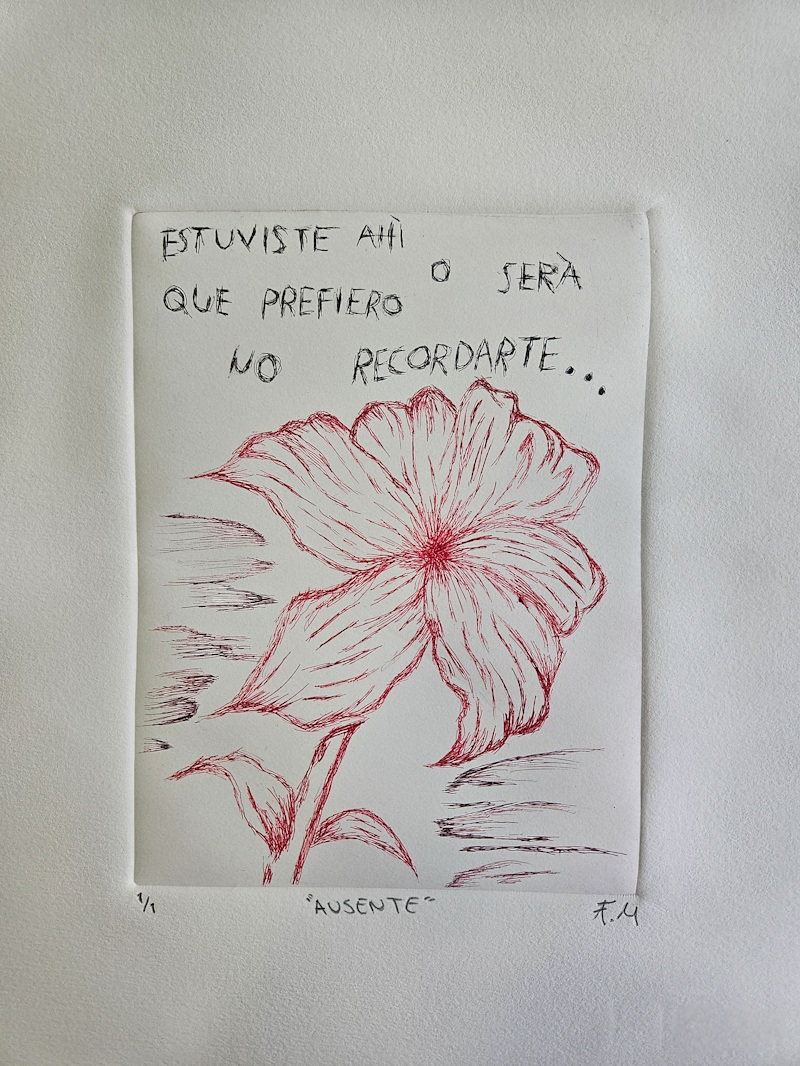 ESTUVISTE AHÌ
O SERÀ
QUE PREFIERO
NO RECORDARTE...
1/1 "AUSENTE" F.M